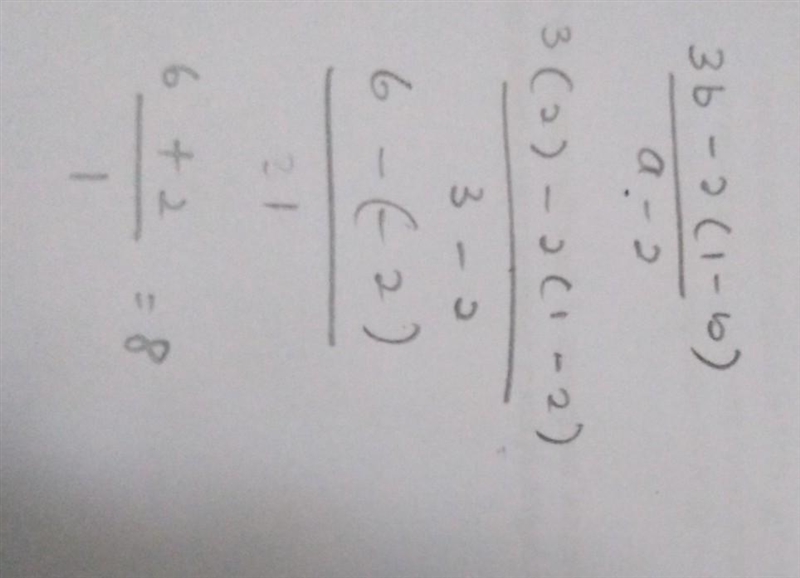 3b - 2(1 - b)
a - 2
3(2) - 2(1 - 2)
3 - 2
6 - (-2)
1
6 + 2
1
= 8